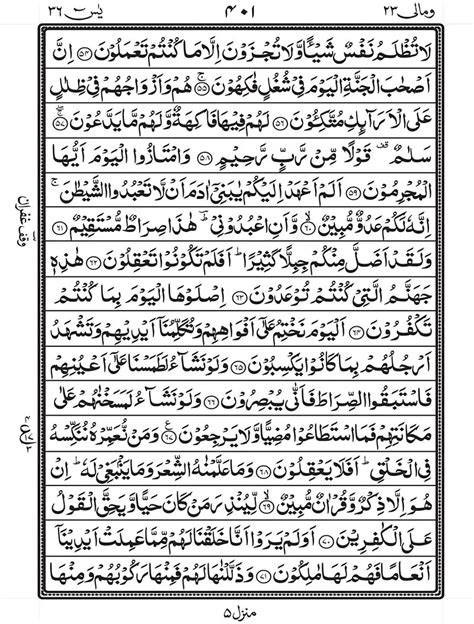 ومالی ٢٣ ٤٠١ یٰسٓ ٣٦
لَا تُظْلَمُ نَفْسٌ شَيْـًٔا وَّلَا تُجْزَوْنَ اِلَّا مَا كُنْتُمْ تَعْمَلُوْنَ ﴿٥٤﴾ اِنَّ
اَصْحٰبَ الْجَنَّةِ الْيَوْمَ فِيْ شُغُلٍ فٰكِهُوْنَ ﴿٥٥﴾ هُمْ وَاَزْوَاجُهُمْ فِيْ ظِلٰلٍ
عَلَى الْاَرَآىِٕكِ مُتَّكِـُٔوْنَ ﴿٥٦﴾ لَهُمْ فِيْهَا فَاكِهَةٌ وَّلَهُمْ مَّا يَدَّعُوْنَ ﴿٥٧﴾
سَلٰمٌ ۟ قَوْلًا مِّنْ رَّبٍّ رَّحِيْمٍ ﴿٥٨﴾ وَامْتَازُوا الْيَوْمَ اَيُّهَا
الْمُجْرِمُوْنَ ﴿٥٩﴾ اَلَمْ اَعْهَدْ اِلَيْكُمْ يٰبَنِيْٓ اٰدَمَ اَنْ لَّا تَعْبُدُوا الشَّيْطٰنَ ۚ
اِنَّهٗ لَكُمْ عَدُوٌّ مُّبِيْنٌ ﴿٦٠﴾ وَّاَنِ اعْبُدُوْنِيْ ؔ هٰذَا صِرَاطٌ مُّسْتَقِيْمٌ ﴿٦١﴾
وَلَقَدْ اَضَلَّ مِنْكُمْ جِبِلًّا كَثِيْرًا ؕ اَفَلَمْ تَكُوْنُوْا تَعْقِلُوْنَ ﴿٦٢﴾ هٰذِهٖ
جَهَنَّمُ الَّتِيْ كُنْتُمْ تُوْعَدُوْنَ ﴿٦٣﴾ اِصْلَوْهَا الْيَوْمَ بِمَا كُنْتُمْ
تَكْفُرُوْنَ ﴿٦٤﴾ اَلْيَوْمَ نَخْتِمُ عَلٰٓى اَفْوَاهِهِمْ وَتُكَلِّمُنَآ اَيْدِيْهِمْ وَتَشْهَدُ
اَرْجُلُهُمْ بِمَا كَانُوْا يَكْسِبُوْنَ ﴿٦٥﴾ وَلَوْ نَشَآءُ لَطَمَسْنَا عَلٰٓى اَعْيُنِهِمْ
فَاسْتَبَقُوا الصِّرَاطَ فَاَنّٰى يُبْصِرُوْنَ ﴿٦٦﴾ وَلَوْ نَشَآءُ لَمَسَخْنٰهُمْ عَلٰى
مَكَانَتِهِمْ فَمَا اسْتَطَاعُوْا مُضِيًّا وَّلَا يَرْجِعُوْنَ ﴿٦٧﴾ وَمَنْ نُّعَمِّرْهُ نُنَكِّسْهُ
فِي الْخَلْقِ ؕ اَفَلَا يَعْقِلُوْنَ ﴿٦٨﴾ وَمَا عَلَّمْنٰهُ الشِّعْرَ وَمَا يَنْۢبَغِيْ لَهٗ ؕ اِنْ
هُوَ اِلَّا ذِكْرٌ وَّقُرْاٰنٌ مُّبِيْنٌ ﴿٦٩﴾ لِّيُنْذِرَ مَنْ كَانَ حَيًّا وَّيَحِقَّ الْقَوْلُ
عَلَى الْكٰفِرِيْنَ ﴿٧٠﴾ اَوَلَمْ يَرَوْا اَنَّا خَلَقْنَا لَهُمْ مِّمَّا عَمِلَتْ اَيْدِيْنَآ
اَنْعَامًا فَهُمْ لَهَا مٰلِكُوْنَ ﴿٧١﴾ وَذَلَّلْنٰهَا لَهُمْ فَمِنْهَا رَكُوْبُهُمْ وَمِنْهَا
وقف غفران
منزل ٥